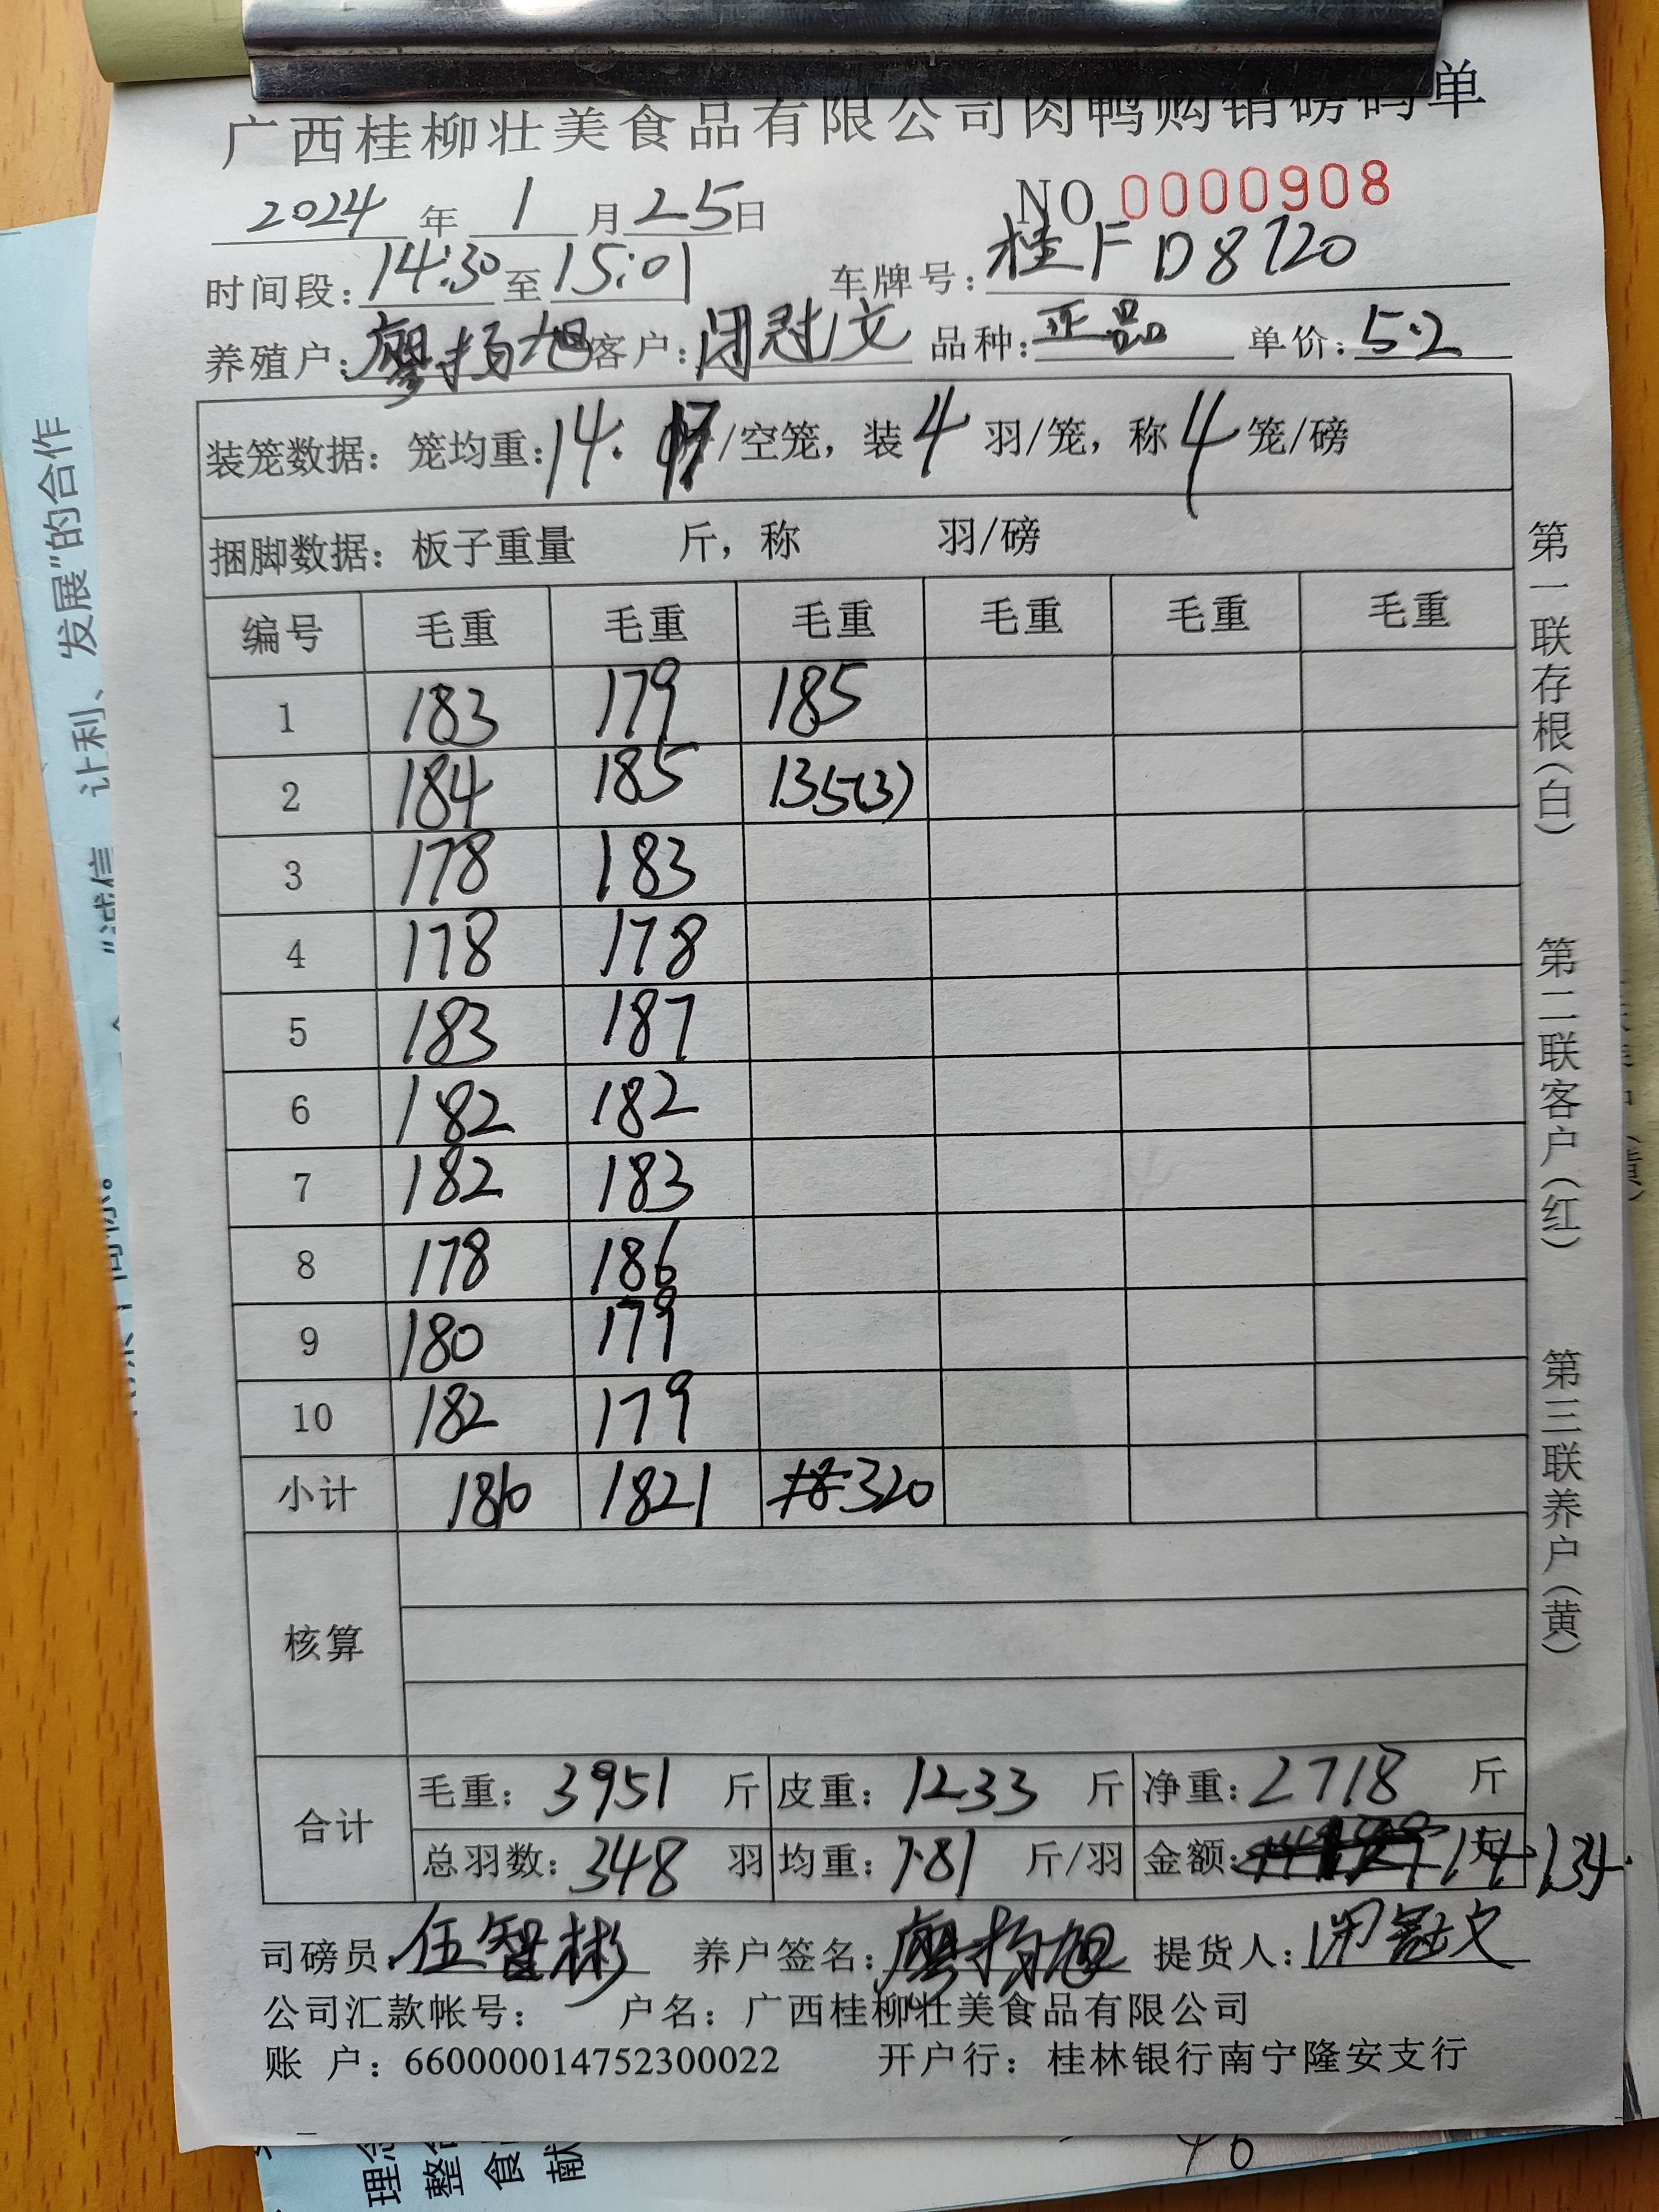 广西桂柳壮美食品有限公司肉鸭购销磅码单
2024 年 1 月 25 日 NO 0000908
时间段: 14:30 至 15:01 车牌号: 桂F D8720
养殖户: 廖扬旭 客户: 闭冠文 品种: 正品 单价: 5.2
装笼数据: 笼均重: 14. 17/空笼, 装 4 羽/笼, 称 4 笼/磅
捆脚数据: 板子重量 斤, 称 羽/磅
编号 毛重 毛重 毛重 毛重 毛重 毛重
1 183 179 185
2 184 185 135(3)
3 178 183
4 178 178
5 183 187
6 182 182
7 182 183
8 178 186
9 180 179
10 182 179
小计 1810 1821 320
核算
合计 毛重: 3951 斤 皮重: 1233 斤 净重: 2718 斤
总羽数: 348 羽 均重: 7.81 斤/羽 金额: 14134.
司磅员: 伍智彬 养户签名: 廖扬旭 提货人: 闭冠文
公司汇款帐号: 户名: 广西桂柳壮美食品有限公司
账 户: 660000014752300022 开户行: 桂林银行南宁隆安支行
第一联存根(白) 第二联客户(红) 第三联养户(黄)
让利、发展"的合作